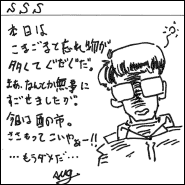 SSS
本日は
こまごまでたれ物が
多くてぐだぐだ。
まあ、なんとか無事に
すごせましたが。
今日は酉の市。
ささもってこいやぁー!!
…もうダメだ…